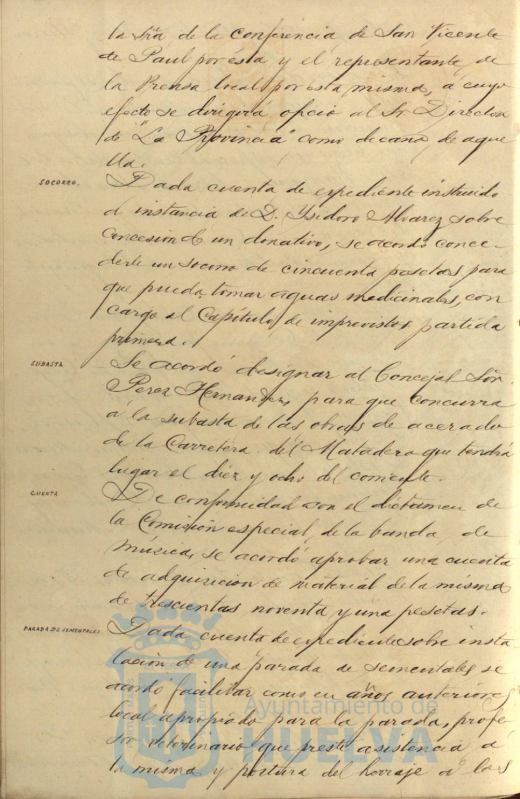 la Sra de la conferencia de San Vicente
de Paul por ésta y el representante de
la Prensa local por ésta misma, á cuyo
efecto se dirigirá oficio al Sr Director
de "La Provincia" como decano de aque
lla.
SOCORRO.
Dada cuenta de expediente instruido
á instancia de D. Ysidoro Alvarez sobre
concesion de un donativo, se acordó conce-
derle un socorro de cincuenta pesetas para
que pueda tomar aguas medicinales, con
cargo al Capítulo de imprevistos partida
primera.
SUBASTA
Se acordó designar al Concejal Sor.
Perez Hernandez, para que concurra
a la subasta de las obras de acerado
de la Carretera del Matadero que tendrá
lugar el diez y ocho del corriente.
CUENTA
De conformidad con el dictamen de
la Comisión especial de la banda de
música, se acordó aprobar una cuenta
de adquisicion de material de la misma
de trescientas noventa y una pesetas.
PARADA DE SEMENTALES
Dada cuenta de expediente sobre insta
lacion de una parada de sementales se
acordó facilitar como en años anteriores
local apropiado para la parada, profe
sor veterinario que preste asistencia á
la misma y postura del herraje a los
Ayuntamiento de
HUELVA